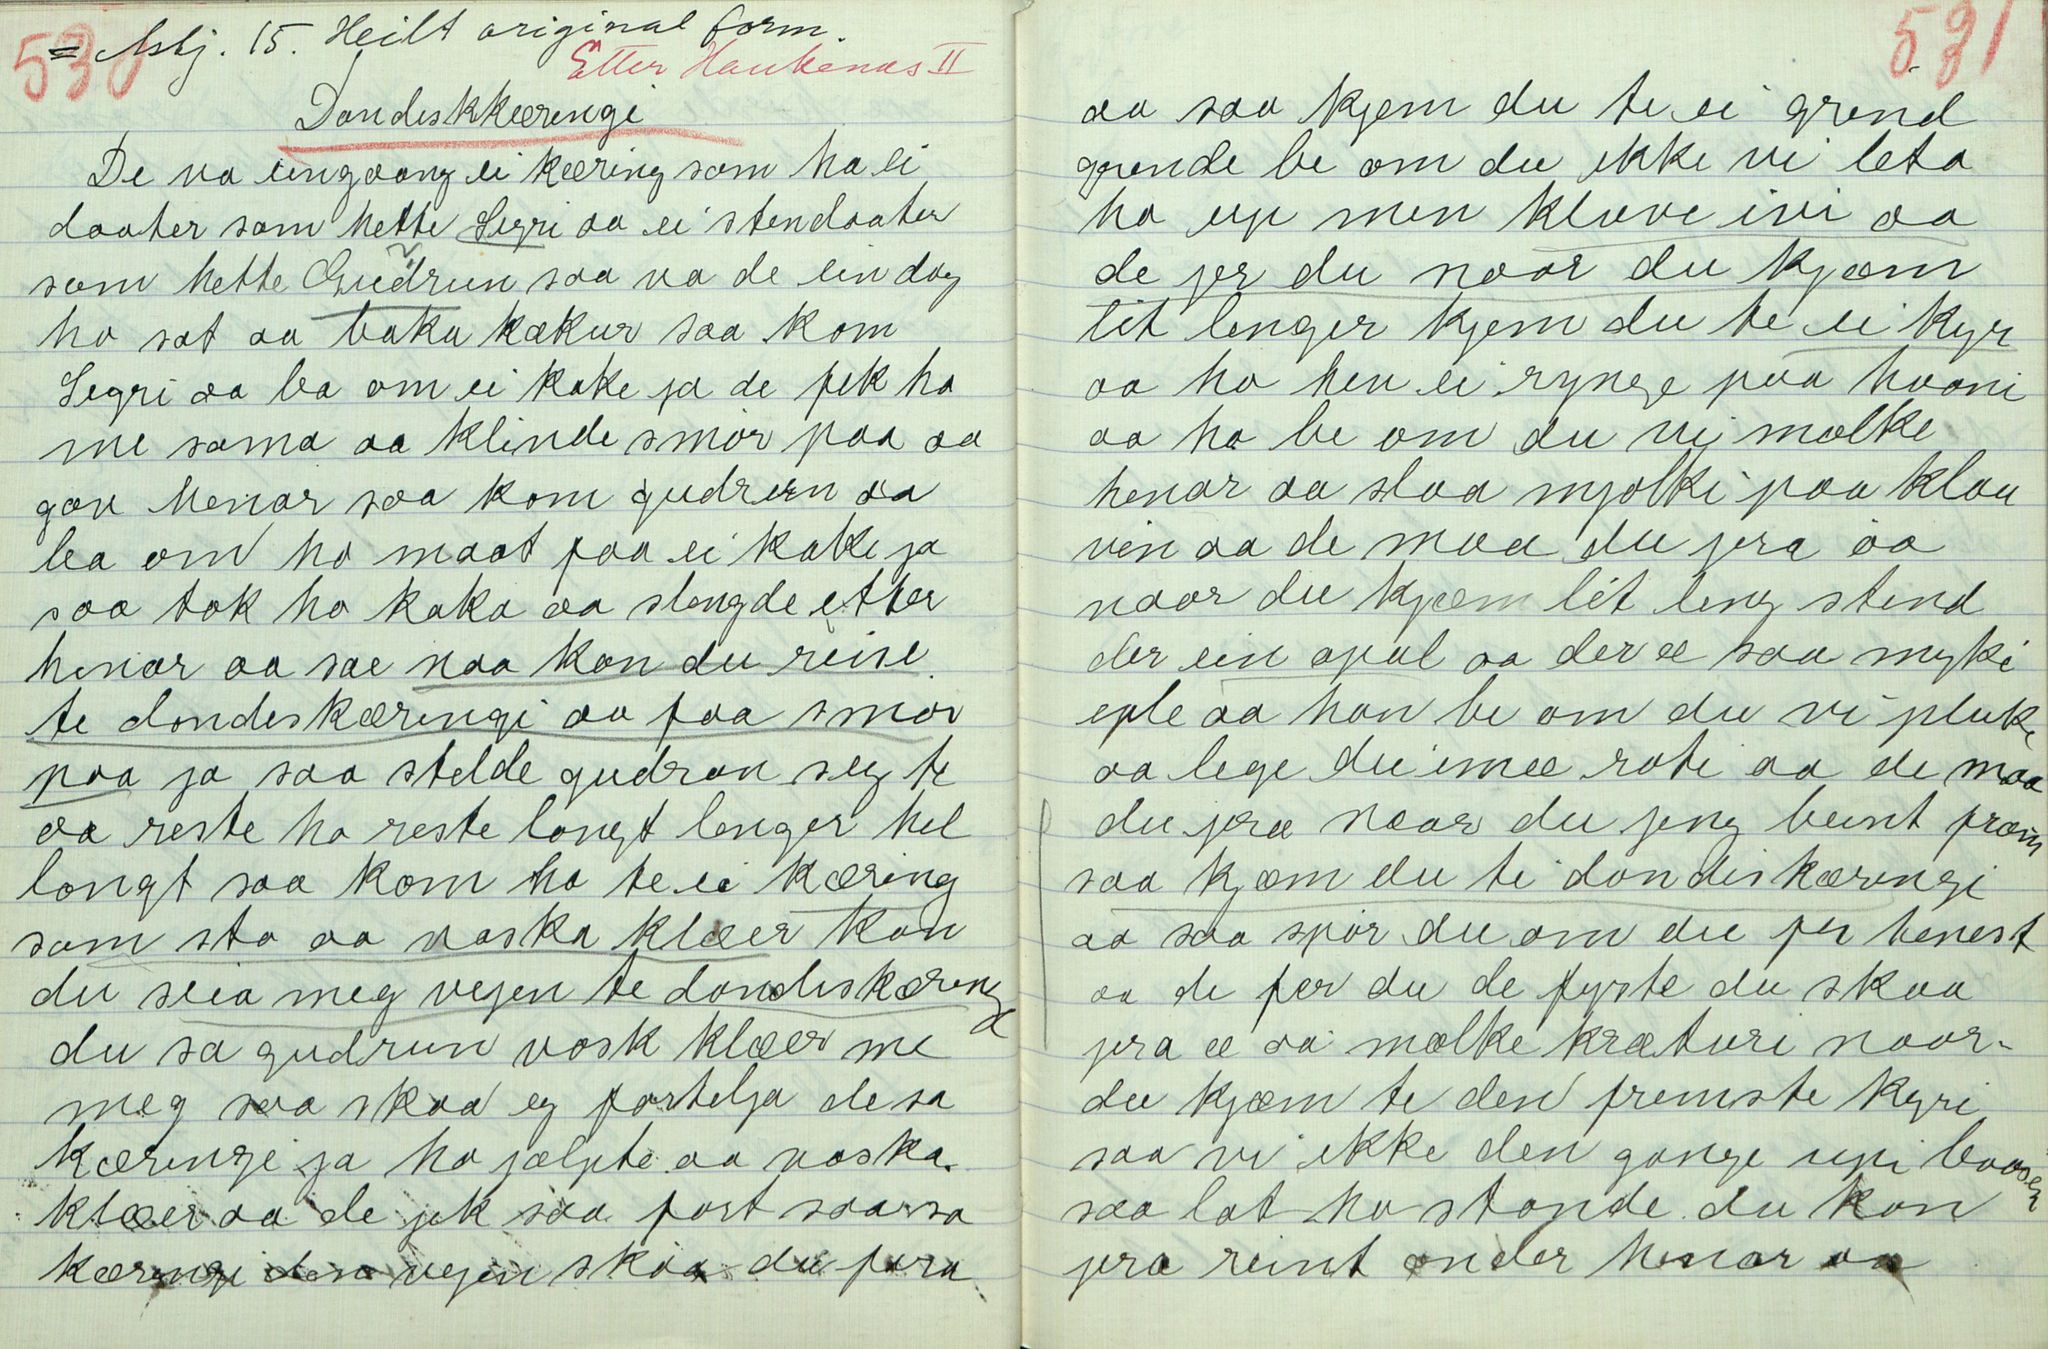 530
= Asbj. 15. Heilt original form.
Etter Haukenæs II
Dondeskkæringi
De va eingaang ei kæring som ha ei
daater som hette Segri aa ei stendaater
som hette Gudrun saa va de ein dag
ho sat aa baka kakur saa kom
Segri aa ba om ei kake ja de fek ho
me sama aa klinde smör paa aa
gav henar saa kom gudrun aa
ba om ho maat faa ei kake ja
saa tok ho kaka aa slengde etter
henar aa sae naa kan du reise
te dondeskæringi aa faa smör
paa ja saa stelde gudrun seg te
aa reste ho reste langt lenger hel
langt saa kom ho te ei kæring
som sto aa vaska klæer kan
du seia meg vejen te dondeskæring
du sa gudrun vosk klæer me
meg saa skaa eg fortelja de sa
kæringi ja ho jælpte aa vaska
klæer aa de jek saa fort saa sa
kæringi den vejen skaa du fara
531
aa saa kjem du te ei grend
grende be om du ikke vi leta
ho up men klave ivi aa
de jer du naar du kjæm
lit lenger kjem du te ei kyr
aa ho hev ei rynge paa hooni
aa ho be om du vi mælke
henar aa slaa mjølki paa klau
ven aa de maa du jera aa
naar du kjæm lit leng stend
der ein apal aa der æ saa myki
eple aa han be om du vi pluke
aa lege dei imæ roti aa de maa
du jera naar du jeng beint fræm
saa kjæm du te dondeskæringi
aa saa spör du om du fer tenest
aa de fer du de fyrste du skaa
jera æ aa mælke kræturi naar
du kjæm te den fremste kyri
saa vi ikke den gange upi baasen
saa lat ho stande du kan
jera reint onder henar aa